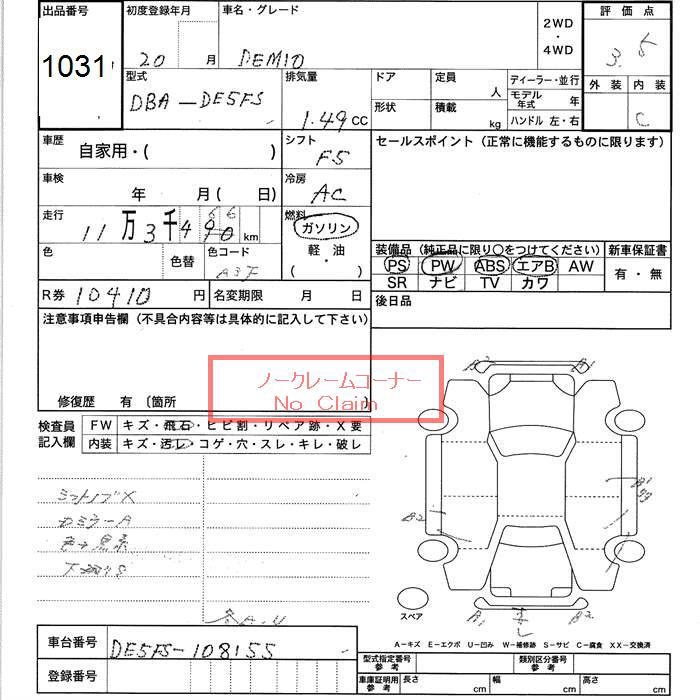 出品番号 初度登録年月 車名・グレード 2WD ・ 4WD 評価点
1031 20 月 DEMIO 3.5
型式 排気量 ドア 定員 人 ディーラー・並行 外装 内装
DBA-DE5FS 1.49 CC 形状 積載 kg モデル年式 年 C
ハンドル 左・右
車歴 自家用・( ) シフト F5 セールスポイント (正常に機能するものに限ります)
車検 年 月 ( 日) 冷房 AC
走行 11万3千490km 燃料 ガソリン
軽・油
( )
色 色替 色コード A3F
装備品 (純正品に限り○をつけてください) 新車保証書
PS PW ABS エアB AW 有・無
SR ナビ TV カワ
R券 10410 円 名変期限 月 日 後日品
注意事項申告欄 (不具合内容等は具体的に記入して下さい)
ノークレームコーナー
No Claim
修復歴 有 〔箇所
検査員記入欄 FW キズ・飛石・ヒビ割・リペア跡・X要
内装 キズ・汚レ・コゲ・穴・スレ・キレ・破レ
B2 A1
A1
B2
A1 B2
スペア
A-キズ E-エクボ U-凹み W-補修跡 S-サビ C-腐食 XX-交換済
車台番号 DE5FS-108155
登録番号
型式指定番号 参考 類別区分番号 参考
車庫証明用 参考 長さ cm 幅 cm 高さ cm